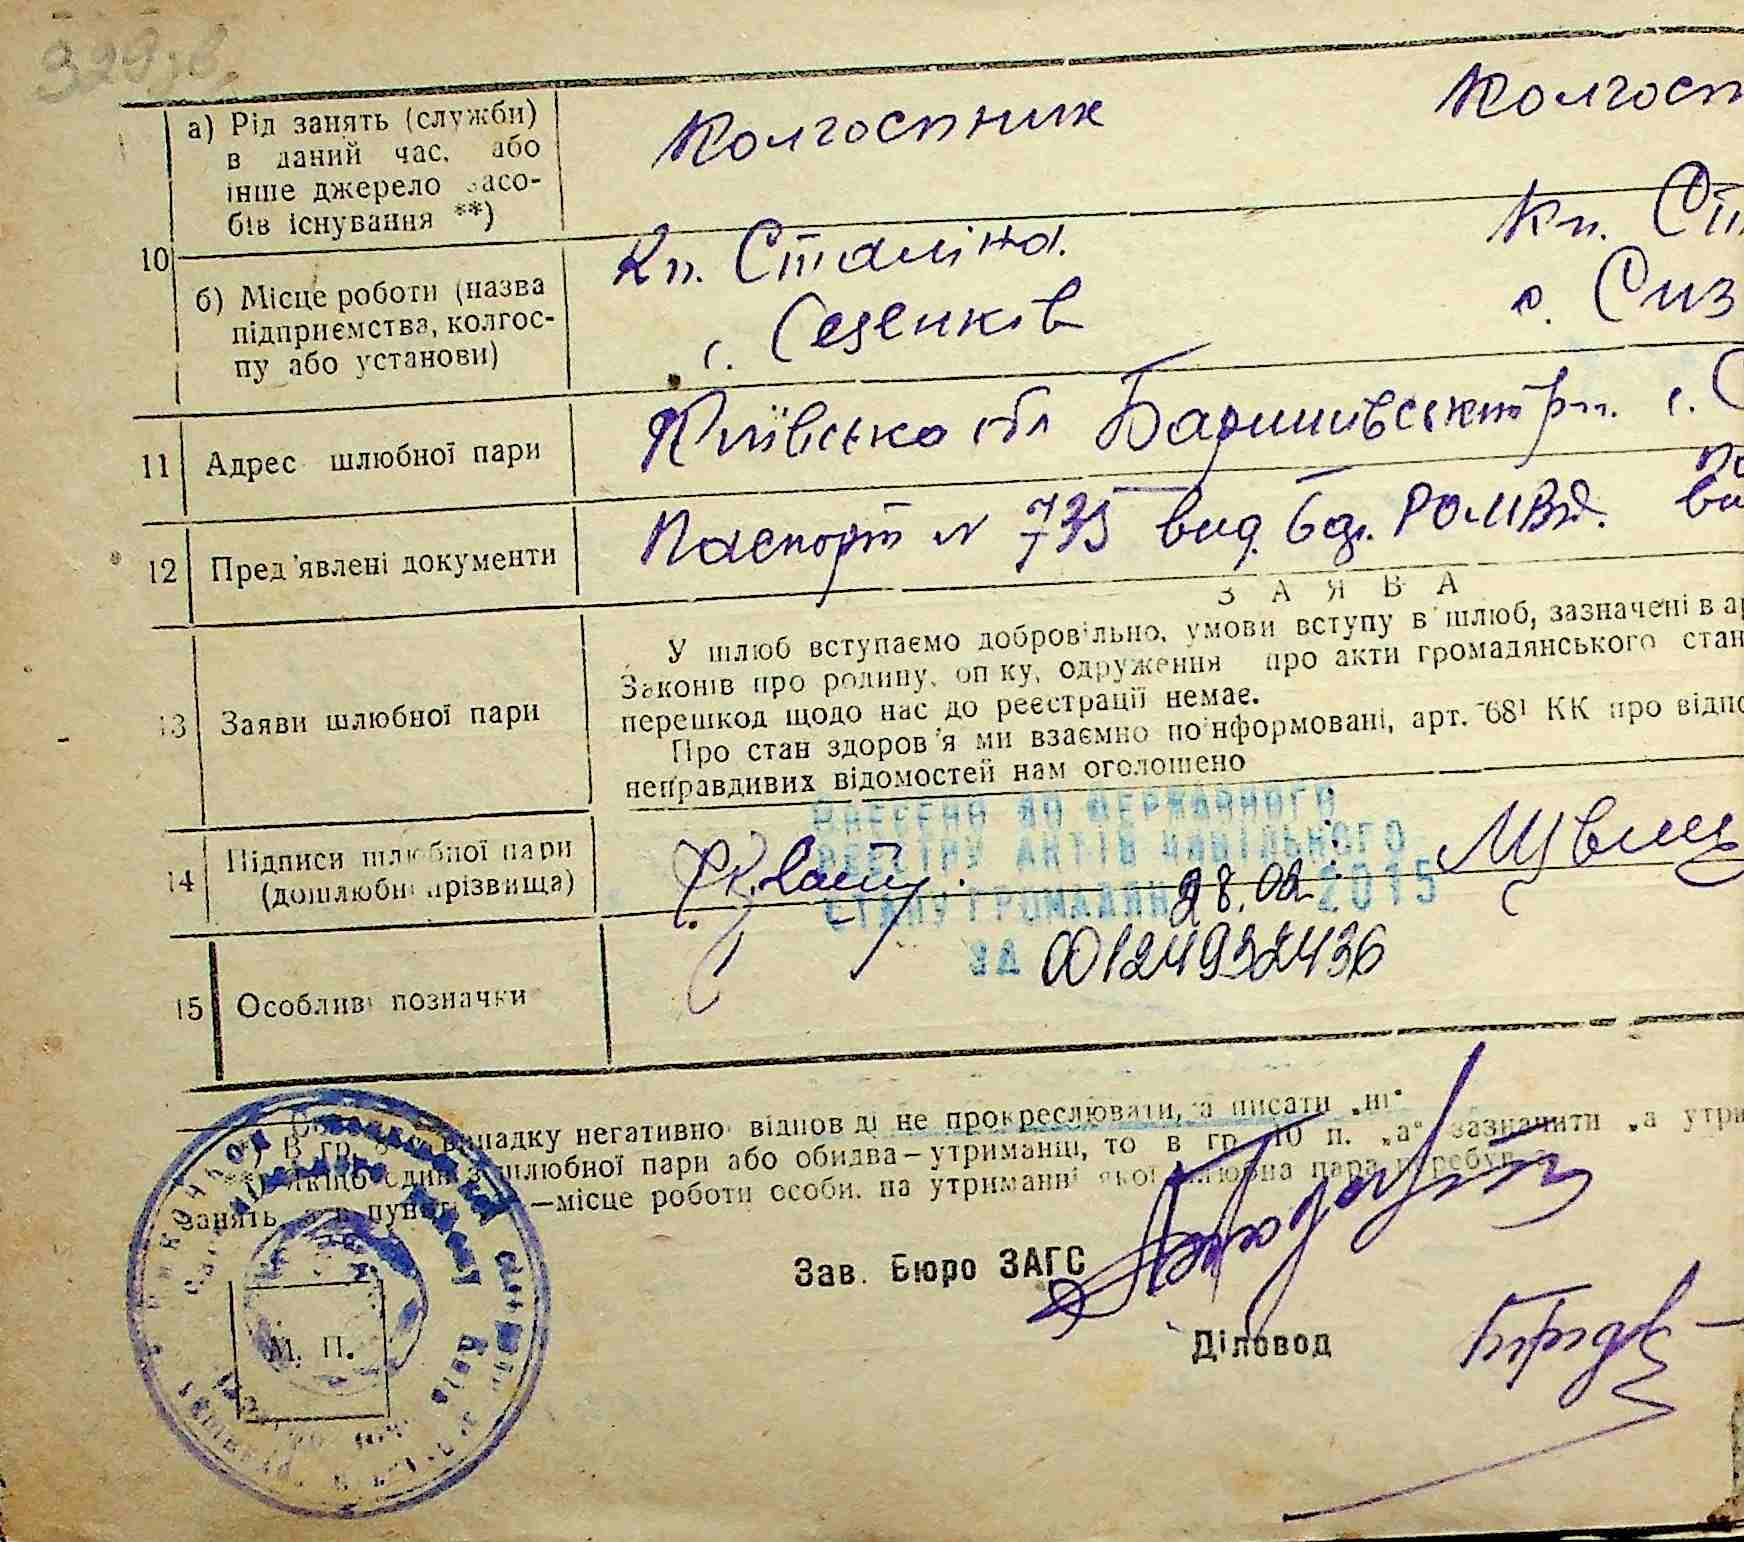 329зв.
а) Рід занять (служби)
в даний час, або
інше джерело засо-
бів існування **)
Колгоспник
Колгосп
10
б) Місце роботи (назва
підприємства, колгос-
пу або установи)
Кп. Сталіна.
Кп. Ст
с.
с. Сиз
11 Адрес шлюбної пари
Київська обл Баришивський р-н. с. С
12 Пред'явлені документи
Паспорт № 735 вид. РОМВД.
ЗАЯВА
У шлюб вступаємо добровільно, умови вступу в шлюб, зазначені в ар
Законів про родину, опіку, одруження про акти громадянського стан
перешкод щодо нас до реєстрації немає.
Про стан здоров'я ми взаємно поінформовані, арт. 68¹ КК про відпо
неправдивих відомостей нам оголошено
13 Заяви шлюбної пари
ВНЕСЕНО ДО ДЕРЖАВНОГО
РЕЄСТРУ АКТІВ ЦИВІЛЬНОГО
СТАНУ ГРОМАДЯН 28.02 2015
ЗА 00124932436
14 Підписи шлюбної пари
(дошлюбні прізвища)
15 Особливі позначки
*) В гр. випадку негативної відповіді не прокреслювати, а писати „ні"
**) Якщо один з шлюбної пари або обидва—утриманці, то в гр. 10 п. „а" зазначити „а утри
занять, а в пункті —місце роботи особи, на утриманні якої шлюбна пара перебуває
М. П.
Зав. Бюро ЗАГС
Діловод